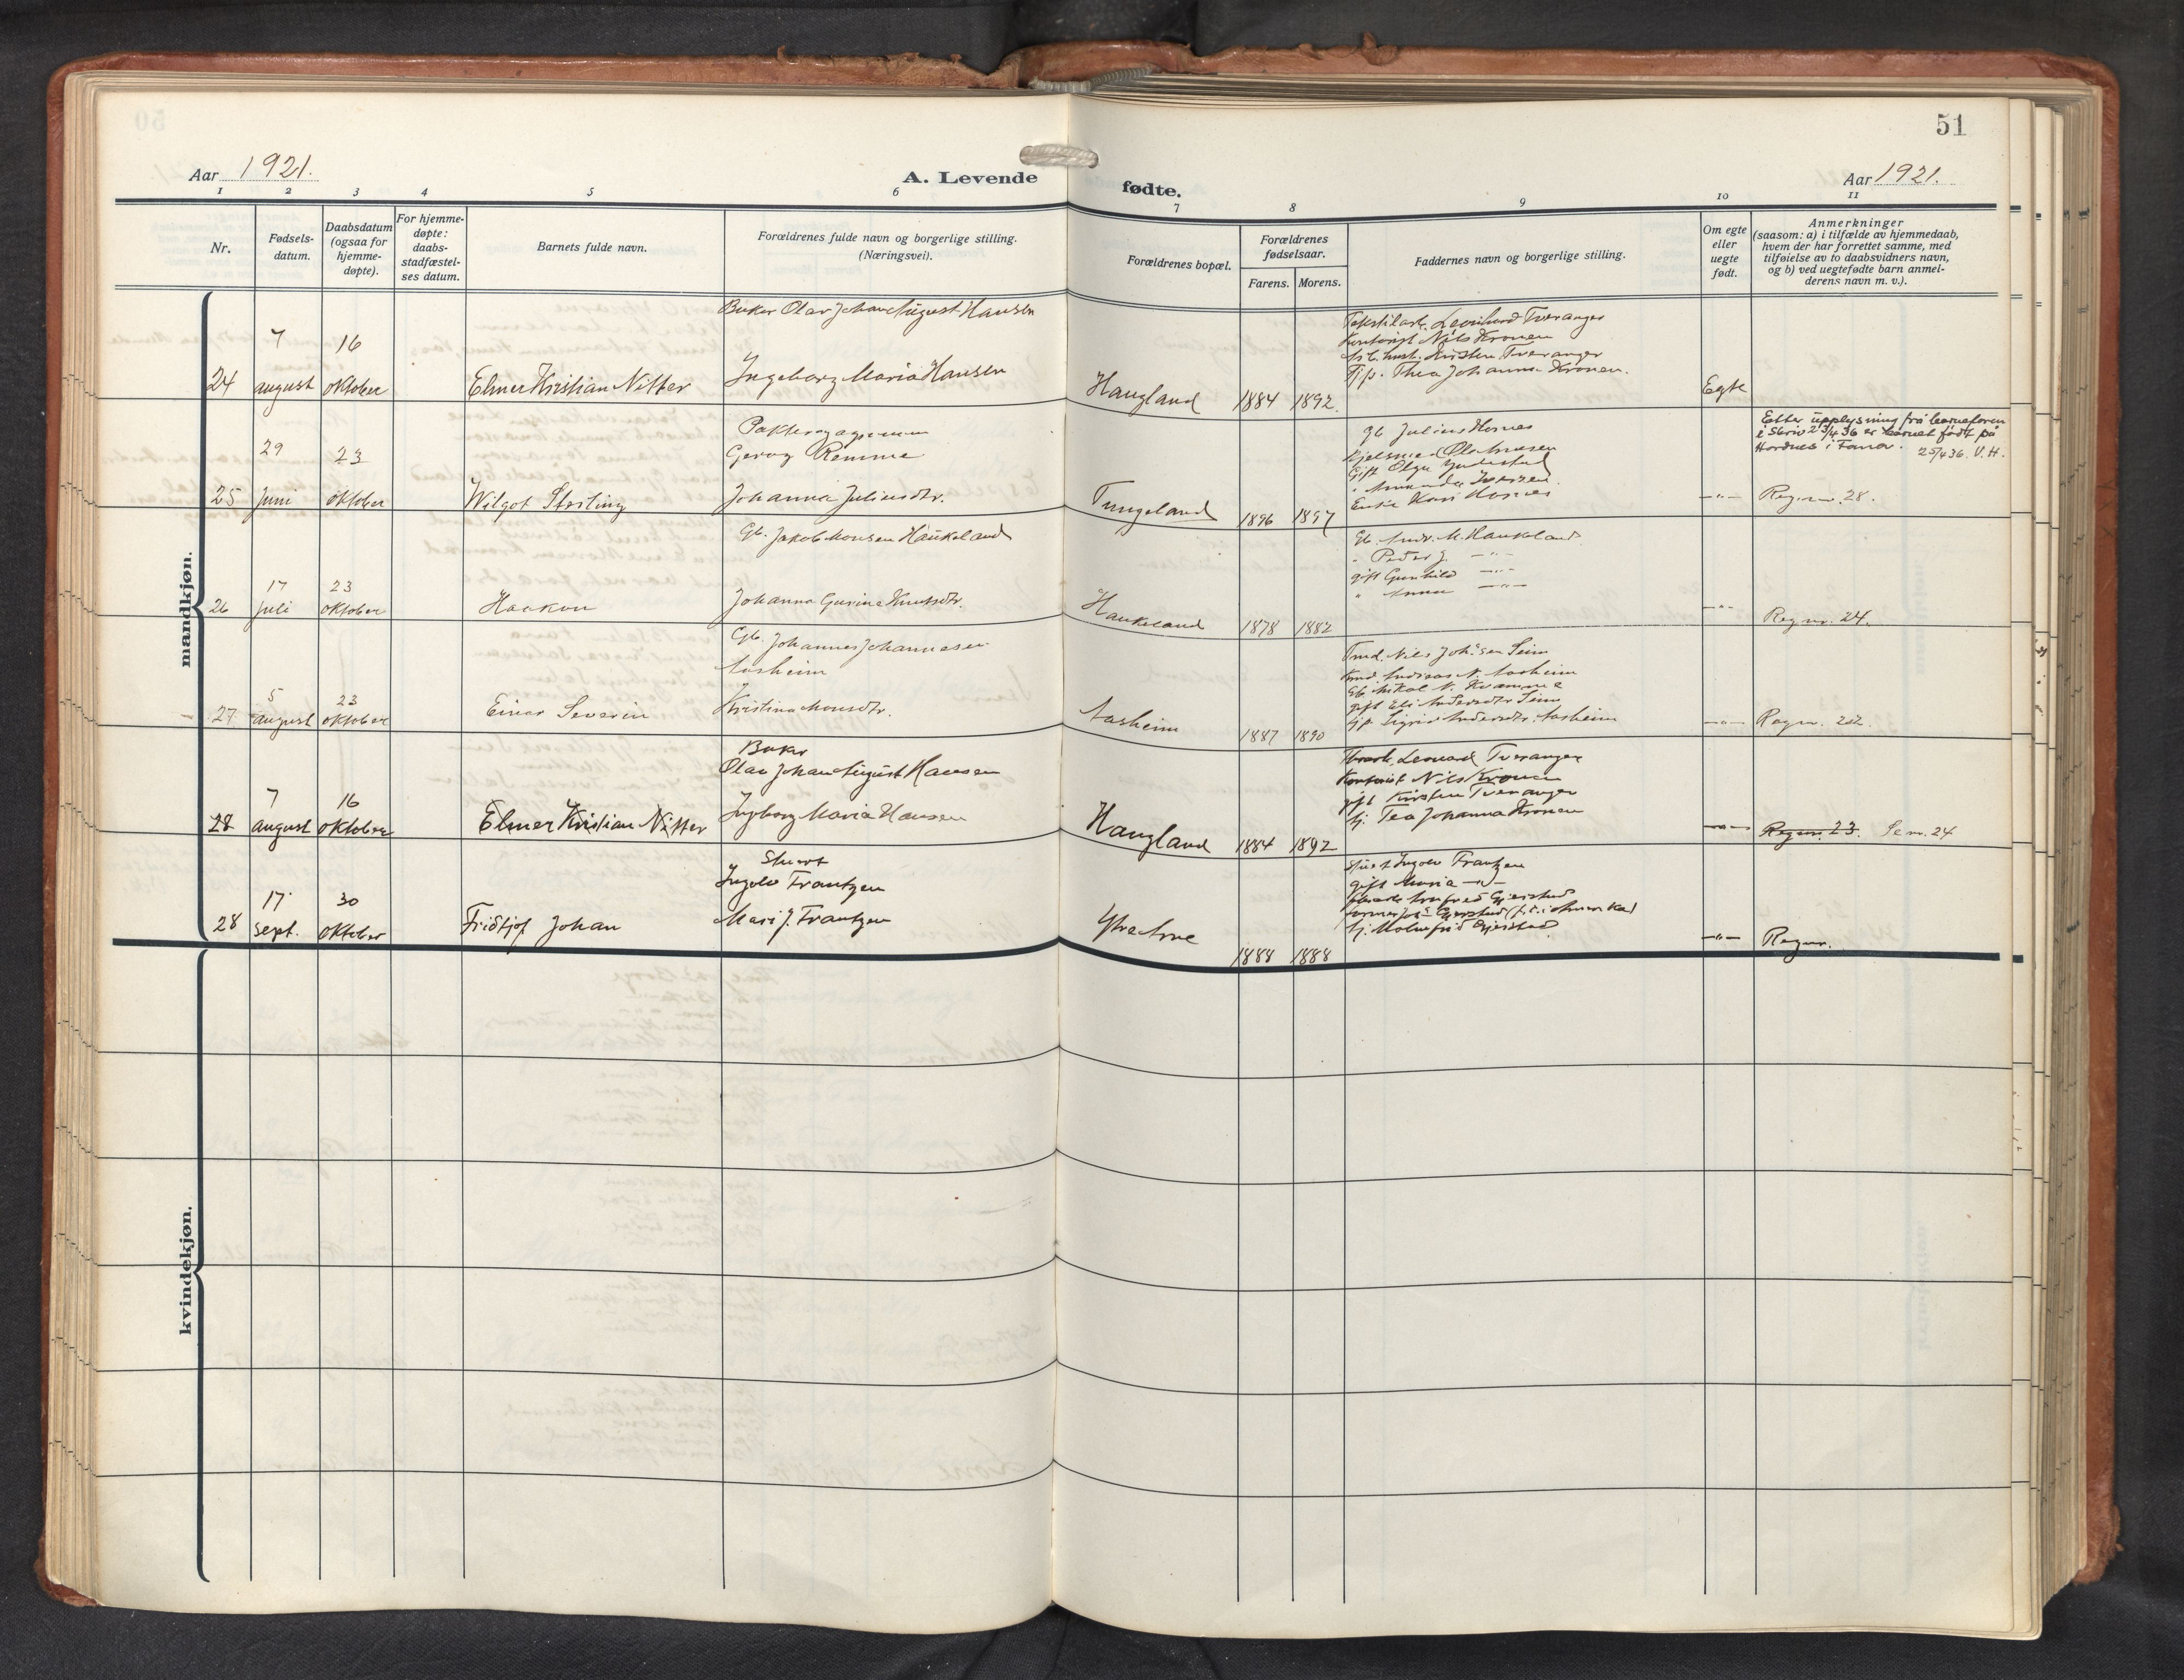 51
Aar 1921.
A. Levende
fødte.
Aar 1921.
1 2 3 4 5 6 7 8 9 10 11
Nr.
Fødsels-
datum.
Daabsdatum
(ogsaa for
hjemme-
døpte).
For hjemme-
døpte:
daabs-
stadfæstel-
ses datum.
Barnets fulde navn.
Forældrenes fulde navn og borgerlige stilling.
(Næringsvei).
Forældrenes bopæl.
Forældrenes
fødselsaar.
Farens. Morens.
Faddernes navn og borgerlige stilling.
Om egte
eller
uegte
født.
Anmerkninger
(saasom: a) i tilfælde av hjemmedaab,
hvem der har forrettet samme, med
tilføielse av to daabsvidners navn,
og b) ved uegtefødte barn anmel-
derens navn m. v.).
mandkjøn.
24
7
august
16
oktober
Elmer Kristian Nitter
Baker Olav Johan August Hansen
Ingeborg Maria Hansen
Haugland
1884 1892.
Leonhard Tveranger
Kontorist Nils Kronen
Kirsten Tveranger
Pj. Thea Johanna Kronen.
Egte
25
29
juni
23
oktober
Wilgot Sterling
Georg Remme
Johanna Juliusdtr.
Tungeland
1896 1897
Gb. Julius Hornes
Gift Olga
Enke Kari Hornes
-"-
Etter upplysning frå
i skriv 23/4 36 er barnet født på
Hordnes i Fana. 25/4 36. V. H.
Reg. nr. 28.
26
17
juli
23
oktober
Haakon
Gb. Jakob Monsen Haukeland
Johanna Gurine Knutsdtr.
Haukeland
1878 1882
Gb. Andr. M. Haukeland
" Peder J. -"-
gift Gunhild -"-
" Anna -"-
-"-
Reg. nr. 24.
27
5
august
23
oktober
Einar Severin
Gb. Johannes Johannesen
Aasheim
Kristina Monsdtr.
Aasheim
1887 1890
Nils Johsen Seim
Andreas N. Aasheim
Gb. Mikal N. Kvamme
gift Eli Andersdtr Seim
pj. Sigrid Andersdtr. Aasheim
-"-
Reg nr. 22.
28
7
august
16
oktober
Elmer Kristian Nitter
Baker
Olav Johan August Hansen
Ingborg Maria Hansen
Haugland
1884 1892
Leonard Tveranger
Kontorist Nils Kronen
gift Kirsten Tveranger
pj. Tea Johanna Kronen
-"-
Reg nr. 23. Se nr. 24
28
17
sept.
30
oktober
Fridtjof Johan
Stuert
Ingolv Frantzen
Mari J. Frantzen
Ytre Arne
1888 1888
Stuert Ingolv Frantzen
gift Maria -"-
-"-
Reg nr.
kvindekjøn.